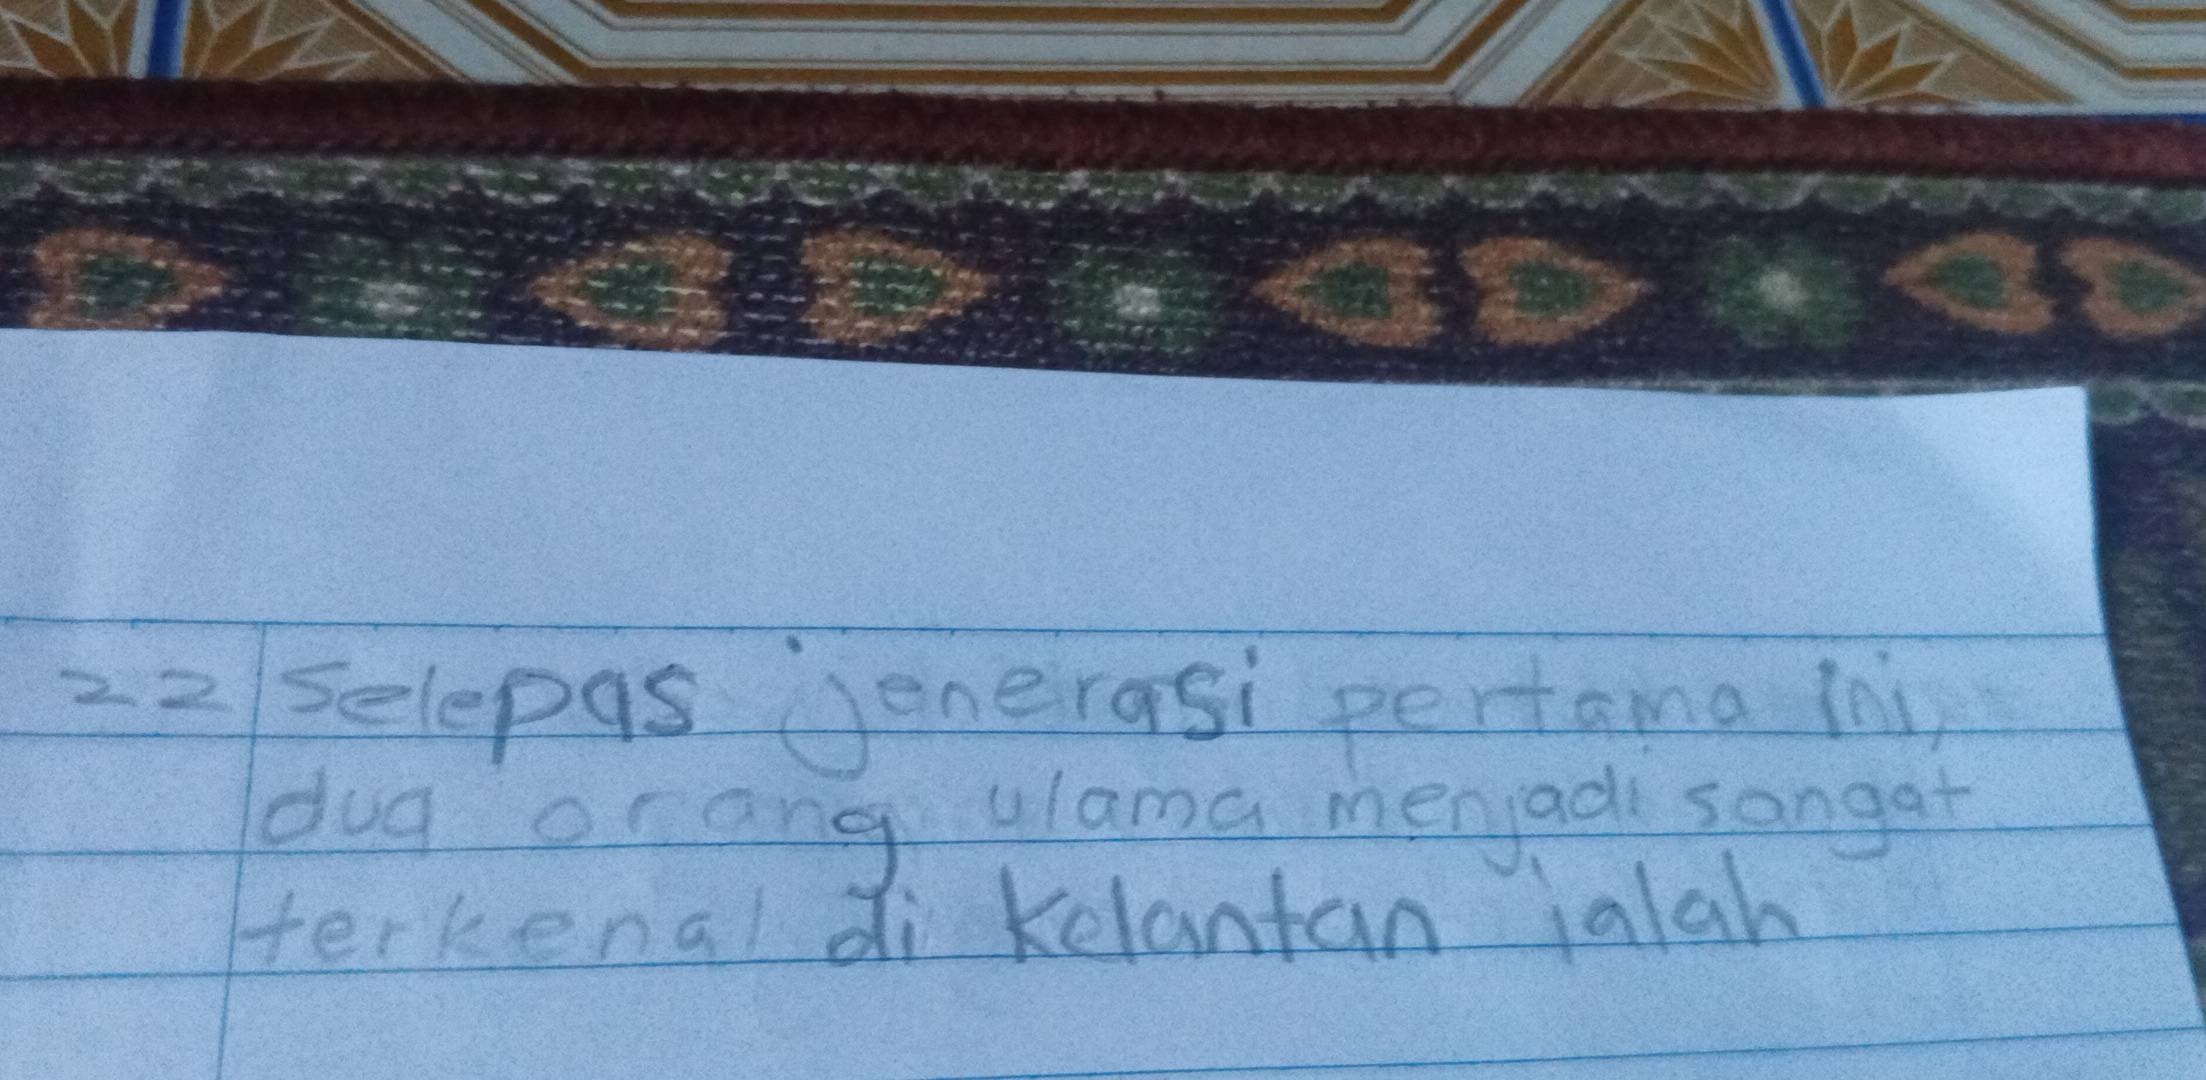 22 Selepas jenerasi pertama ini,
dua orang ulama menjadi sangat
terkenal di Kelantan ialah